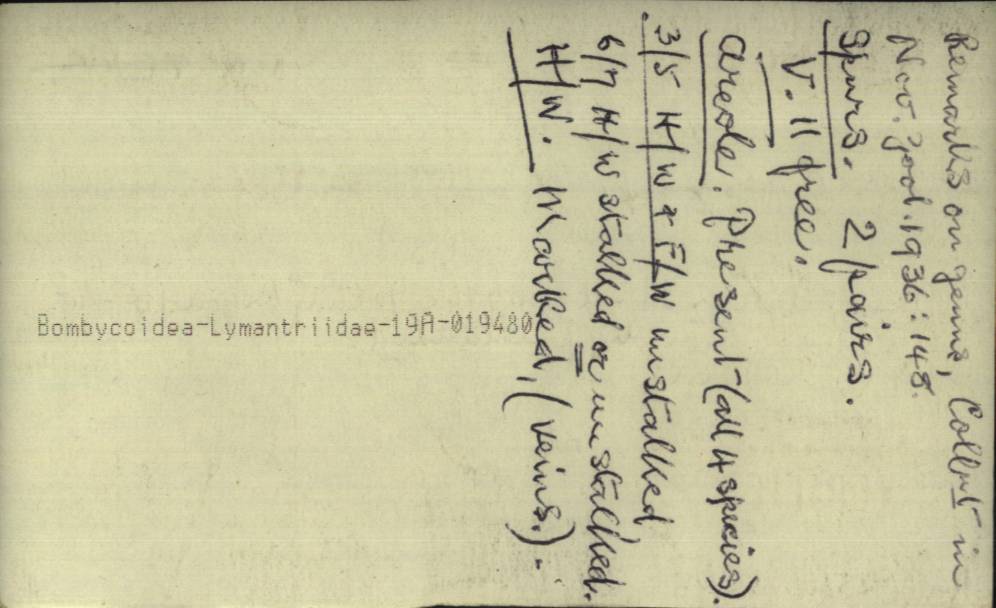 Remarks on genus, Collnt in
Nov. Zool. 1936: 148.
Spurs. 2 pairs.
V. 11 free.
Areole. Present (all 4 species).
3/5 H/W & F/W unstalked
6/7 H/W stalked or unstalked.
H/W. Marked, (veins.).
Bombycoidea-Lymantriidae-19A-019480